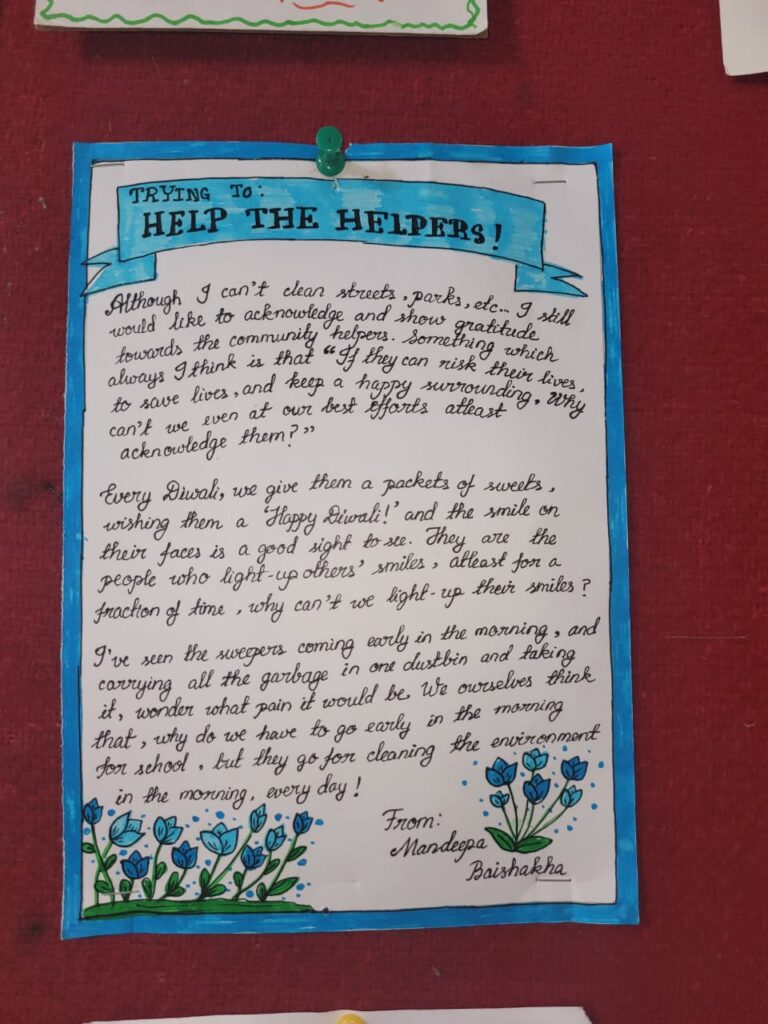 TRYING TO:
HELP THE HELPERS!
Although I can't clean streets, parks, etc... I still
would like to acknowledge and show gratitude
towards the community helpers. Something which
always I think is that "If they can risk their lives,
to save lives, and keep a happy surrounding. Why
can't we even at our best efforts atleast
acknowledge them?"
Every Diwali, we give them a packets of sweets,
wishing them a 'Happy Diwali!' and the smile on
their faces is a good sight to see. They are the
people who light-up others' smiles, atleast for a
fraction of time, why can't we light-up their smiles?
I've seen the sweepers coming early in the morning, and
carrying all the garbage in one dustbin and taking
it, wonder what pain it would be. We ourselves think
that, why do we have to go early in the morning
for school, but they go for cleaning the environment
in the morning, every day!
From:
Mandeepa
Baishakha